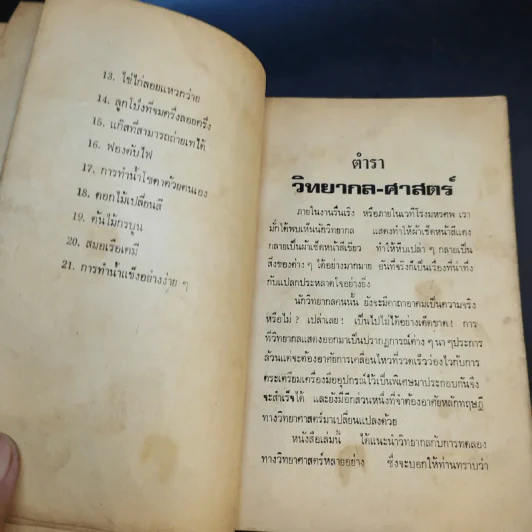 13. ไข่ไก่ลอยแหวกว่าย
14. ลูกโป่งที่จมครึ่งลอยครึ่ง
15. แก๊สที่สามารถถ่ายเทได้
16. ฟองดับไฟ
17. การทำน้ำโซดาด้วยตนเอง
18. ดอกไม้เปลี่ยนสี
19. ต้นไม้การบูน
20. สมอเรือเคมี
21. การทำน้ำแข็งอย่างง่าย ๆ
ตำรา
วิทยากล-ศาสตร์
ภายในงานรื่นเริง หรือภายในเวทีโรงมหรศพ เรา
มักได้พบเห็นนักวิทยากล แสดงทำให้ผ้าเช็ดหน้าสีแดง
กลายเป็นผ้าเช็ดหน้าสีเขียว ทำให้หีบเปล่า ๆ กลายเป็น
สิ่งของต่าง ๆ ได้อย่างมากมาย อันที่จริงก็เป็นเรื่องที่น่าทึ่ง
กับแปลกประหลาดใจอย่างยิ่ง
นักวิทยากลคนนั้น ยังจะมีคาถาอาคมเป็นความจริง
หรือไม่ ? เปล่าเลย ! เป็นไปไม่ได้อย่างเด็ดขาด ! การ
ที่วิทยากลแสดงออกมาเป็นปรากฏการณ์ต่าง ๆ นา ๆ ประการ
ล้วนแต่จะต้องอาศัยการเคลื่อนไหวที่รวดเร็วว่องไวกับการ
ตระเตรียมเครื่องมืออุปกรณ์ไว้เป็นพิเศษมาประกอบกันจึง
จะสำเร็จได้ และยังมีอีกส่วนหนึ่งที่จำต้องอาศัยหลักทฤษฎี
ทางวิทยาศาสตร์มาเปลี่ยนแปลงด้วย
หนังสือเล่มนี้ ได้แนะนำวิทยากลกับการทดลอง
ทางวิทยาศาสตร์หลายอย่าง ซึ่งจะบอกให้ท่านทราบว่า